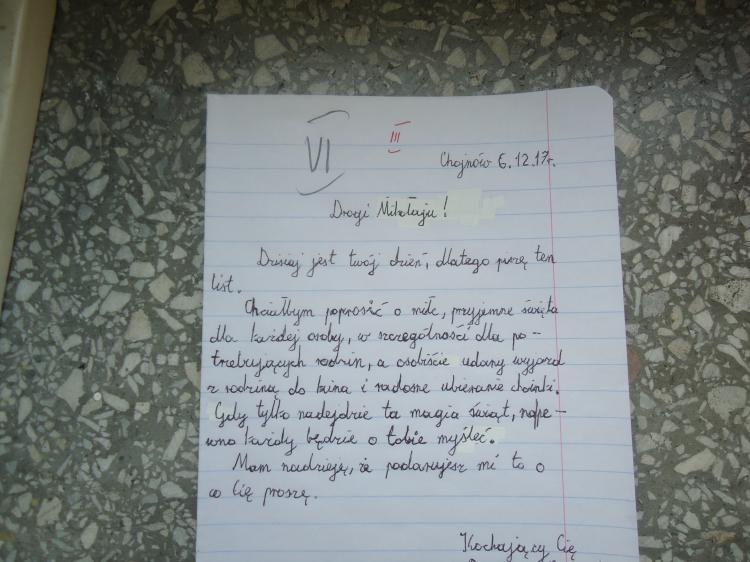 VI III
Chojnów 6.12.17r.
Drogi Mikołaju!
Dzisiaj jest twój dzień, dlatego piszę ten
list.
Chciałbym poprosić o miłe, przyjemne święta
dla każdej osoby, w szczególności dla po-
trzebujących rodzin, a osobiście udany wyjazd
z rodziną do kina i radosne ubieranie choinki.
Gdy tylko nadejdzie ta magia świąt, nape-
wno każdy będzie o tobie myśleć.
Mam nadzieję, że podarujesz mi to o
co Cię proszę.
Kochający Cię